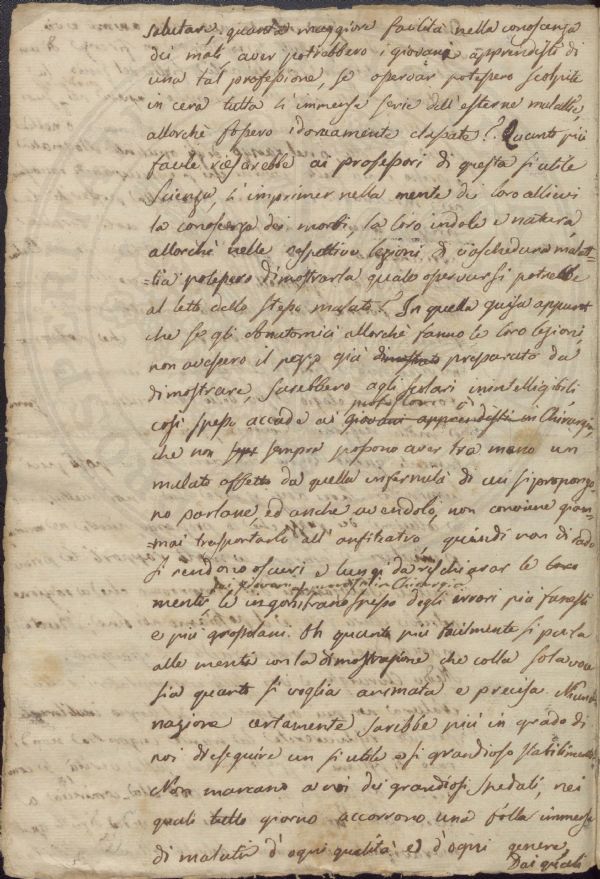 salutare, quanta maggiore facilità nella conoscenza
dei mali aver potrebbero i giovani apprendisti di
una tal professione, se osservar potessero scolpite
in cera tutta l'immensa serie dell'esterne malattie,
allorchè fossero idoneamente classate? Quanto più
facile riescirebbe ai professori di questa sì utile
Scienza, l'imprimer nella mente dei loro allievi
la conoscenza dei morbi, la loro indole e natura
allorchè nelle respettive lezioni di ciascheduna malat-
=tia potessero dimostrarla quale osservar si potrebbe
al letto dello stesso malato? In quella guisa appunto
che se gli Anatomici allorchè fanno le loro lezioni,
non avessero il pezzo già dimostrato preparato da
dimostrare, sarebbero agli scolari inintelligibili
così spesso accade ai giovani apprendisti in Chirurgia,
che non sempre possono aver tra mano un
malato affetto da quella infermità di cui si propongo-
no parlare, ed anche avendolo, non conviene giam-
=mai trasportarlo all'anfiteatro quindi non di rado
si rendono oscuri e lungi da rischiarar le loro
ai giovani in Chirurgia
menti, le ingombrano spesso degli errori più funesti
e più grossolani. Oh quanto più facilmente si parla
alle menti con la dimostrazione, che colla sola voce
sia quanto si voglia animata e precisa. Niuna
nazione certamente sarebbe più in grado di
noi di eseguire un sì utile e sì grandioso stabilimento.
Non mancano a noi dei grandiosi spedali, nei
quali tutto giorno accorrono una folla immensa
di malati d'ogni qualità ed d'ogni genere
Dai quali